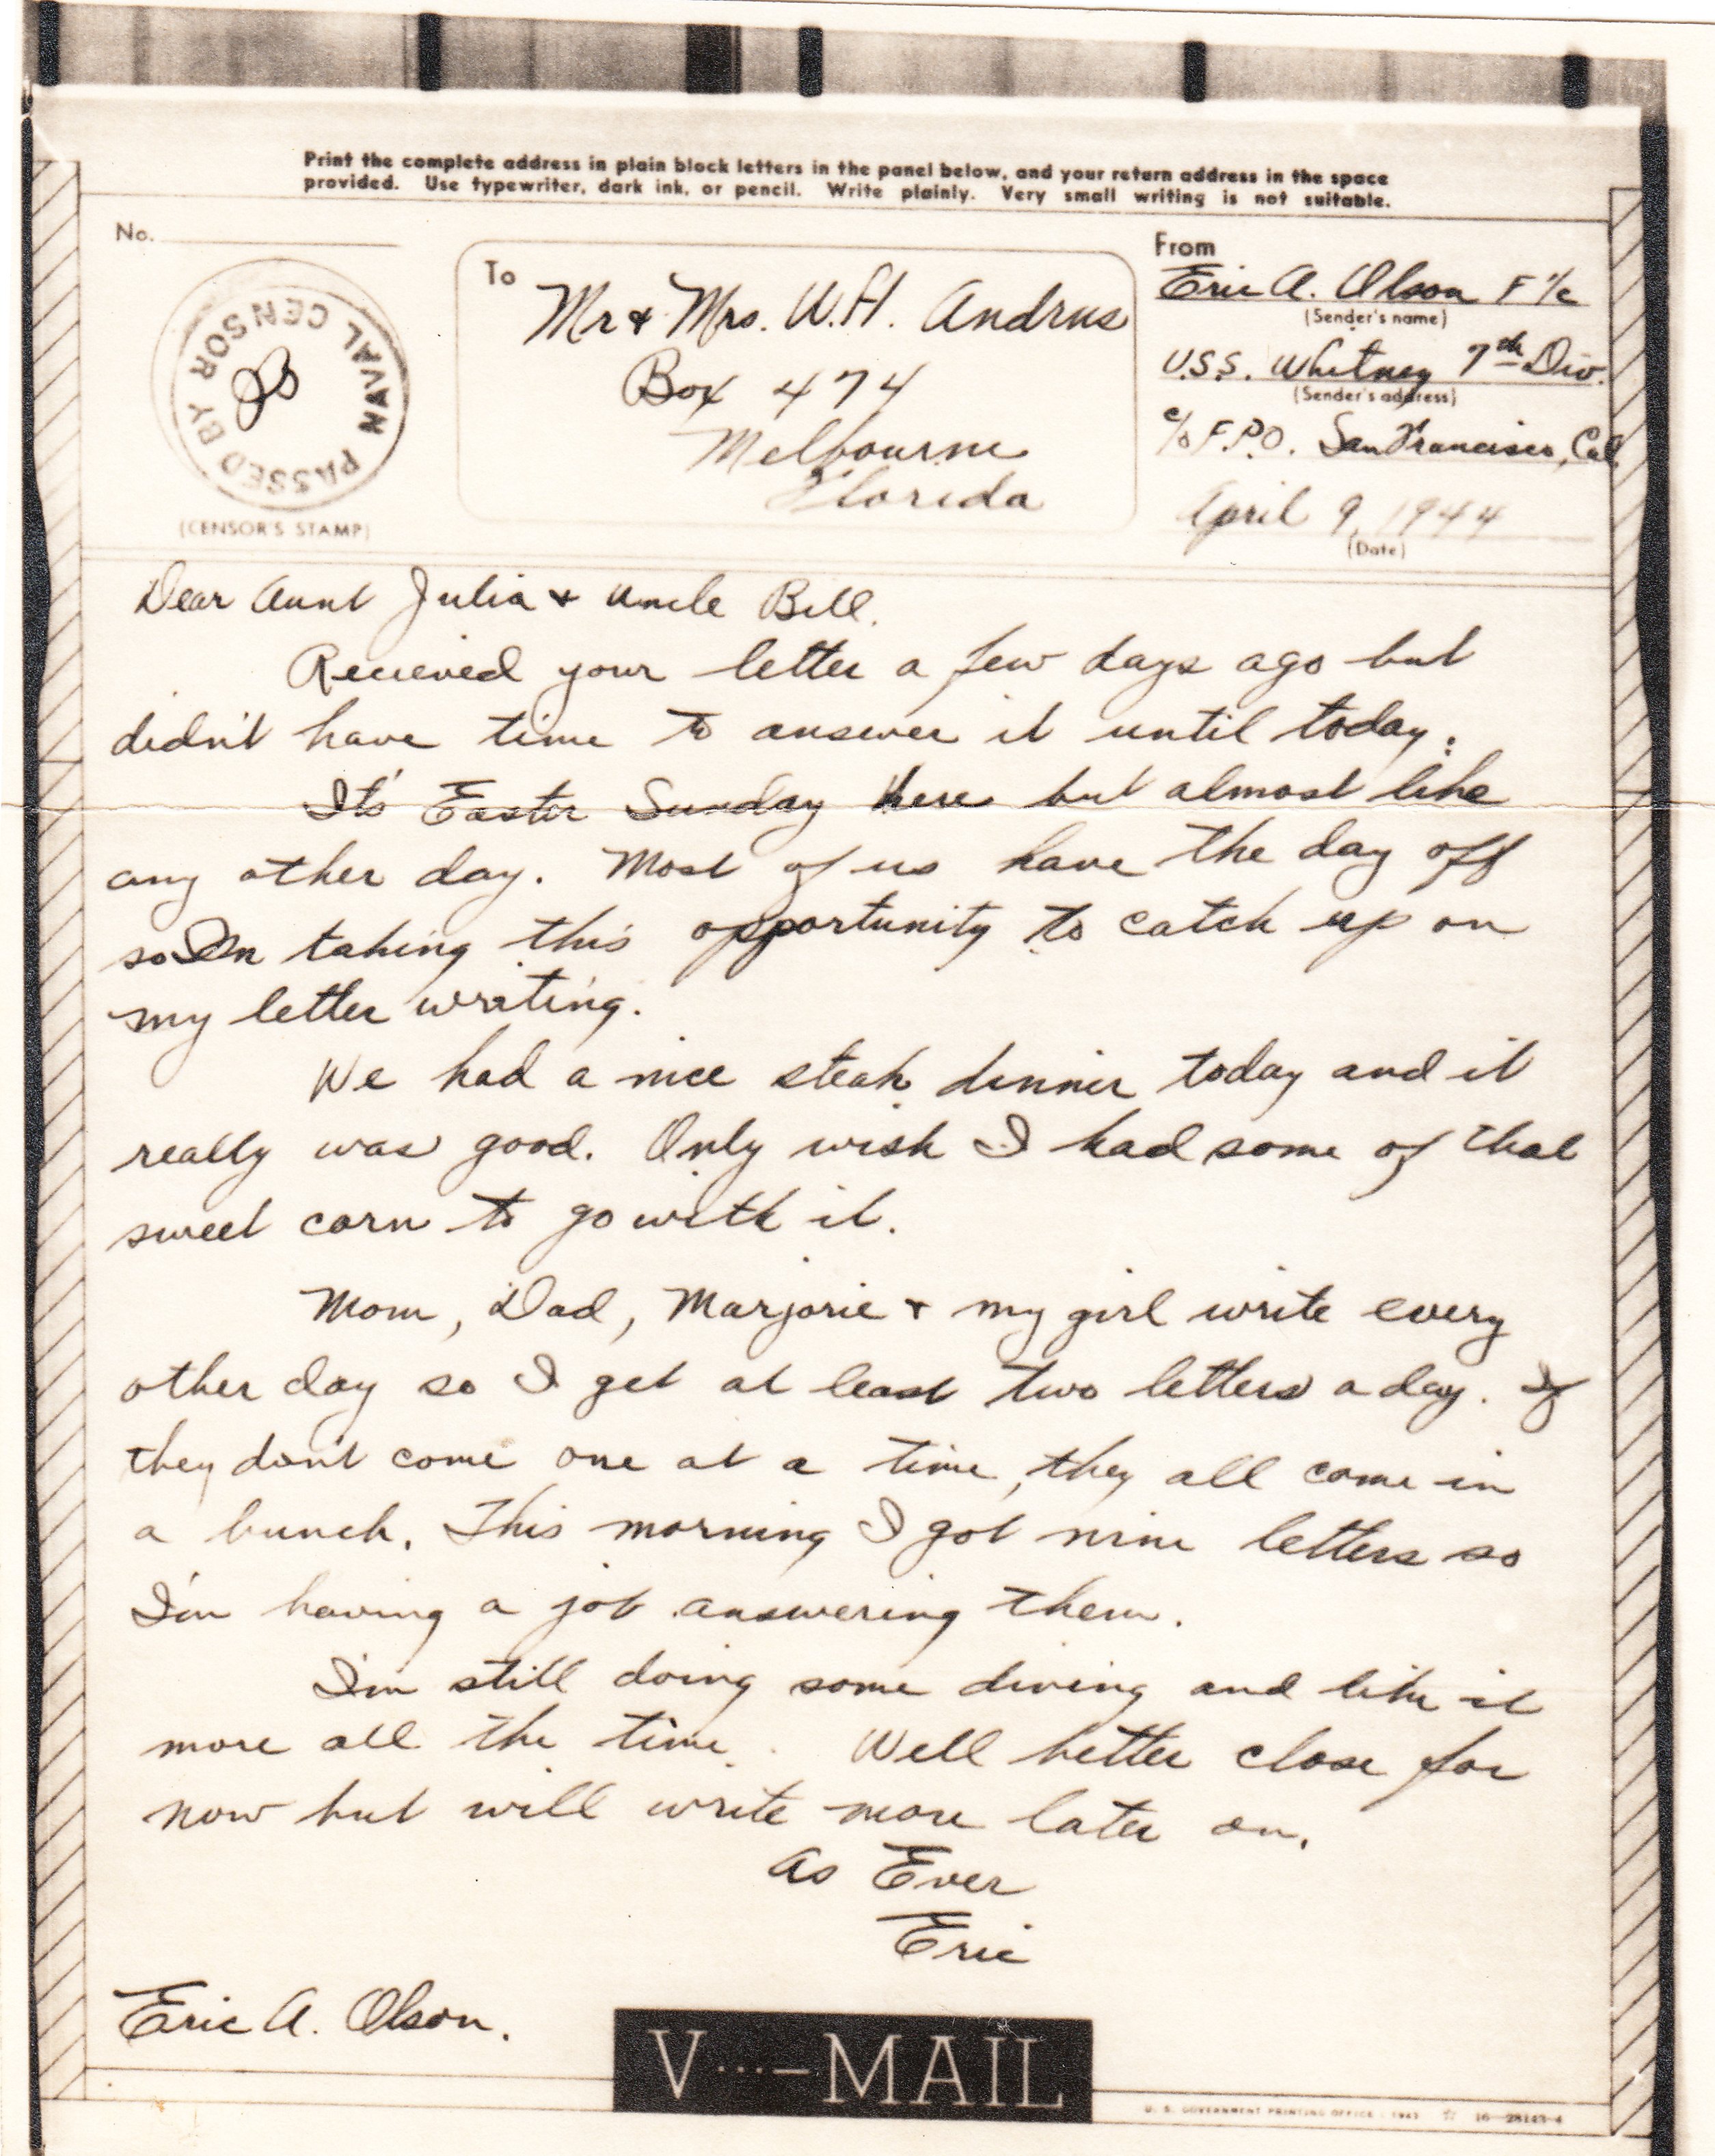 Print the complete address in plain block letters in the panel below, and your return address in the space
provided. Use typewriter, dark ink, or pencil. Write plainly. Very small writing is not suitable.
No.
PASSED BY NAVAL CENSOR
(CENSOR'S STAMP)
To
Mr & Mrs. W.H. Andrus
Box 474
Melbourne
Florida
From
Eric A. Olson F 1/c
(Sender's name)
U.S.S. Whitney 7th Div.
(Sender's address)
c/o F.P.O. San Francisco, Cal.
April 9, 1944
(Date)
Dear Aunt Julia & Uncle Bill.
Recieved your letter a few days ago but
didn't have time to answer it until today.
It's Easter Sunday here but almost like
any other day. Most of us have the day off
so I'm taking this opportunity to catch up on
my letter writing.
We had a nice steak dinner today and it
really was good. Only wish I had some of that
sweet corn to go with it.
Mom, Dad, Marjorie & my girl write every
other day so I get at least two letters a day. If
they don't come one at a time, they all come in
a bunch. This morning I got nine letters so
I'm having a job answering them.
I'm still doing some diving and like it
more all the time. Well better close for
now but will write more later on.
As Ever
Eric
Eric A. Olson.
V···—MAIL
U. S. GOVERNMENT PRINTING OFFICE : 1943 ☆ 16—28143-4